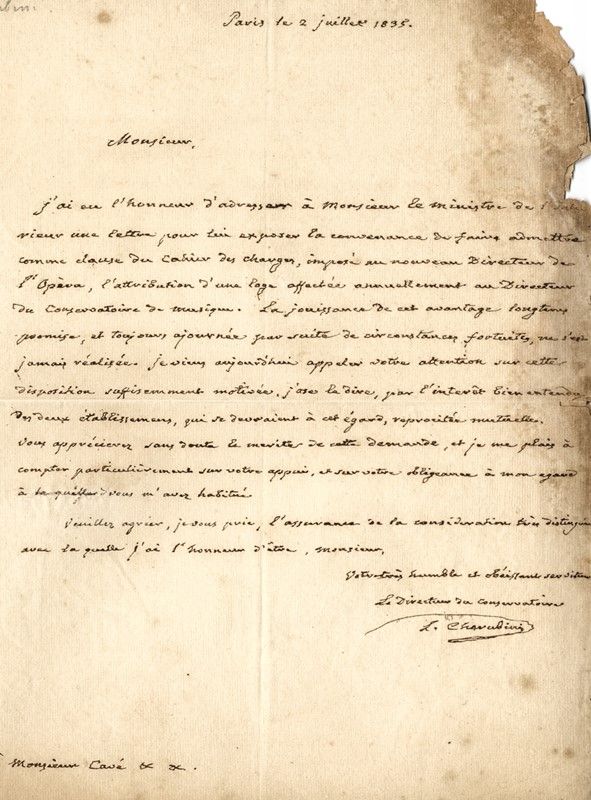 Paris le 2 juillet 1835.
Monsieur,
j'ai eu l'honneur d'adresser à Monsieur le Ministre de l'Inte
rieur une lettre pour lui exposer la convenance de faire admettre
comme clause du Cahier des charges, imposé au nouveau Directeur de
l'Opéra, l'attribution d'une loge affectée annuellement au Directeur
du Conservatoire de musique. La jouissance de cet avantage longtems
promise, et toujours ajournée par suite de circonstances fortuites, ne s'est
jamais réalisée. je viens aujourdhui appeler votre attention sur cette
disposition suffisemment motivée, j'ose le dire, par l'interêt bien entendu
des deux établissemens, qui se devraient à cet égard, reprocités mutuelle.
vous apprécierez sans doute le merites de cette demande, et je me plais à
compter particulièrement sur votre appui, et sur votre obligeance à mon egard
à la quelle vous m'avez habitué.
Veuillez agréer, je vous prie, l'assurance de la considération très distinguée
avec la quelle j'ai l'honneur d'être, Monsieur,
Votre très humble et obéissant serviteur
Le Directeur du Conservatoire
L. Cherubini
Monsieur Cavé & &.